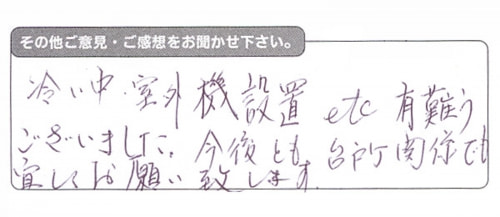 その他ご意見・ご感想をお聞かせ下さい。
冷い中、室外機設置 etc 有難う
ございました。今後とも、台所関係でも
宜しくお願い致します。